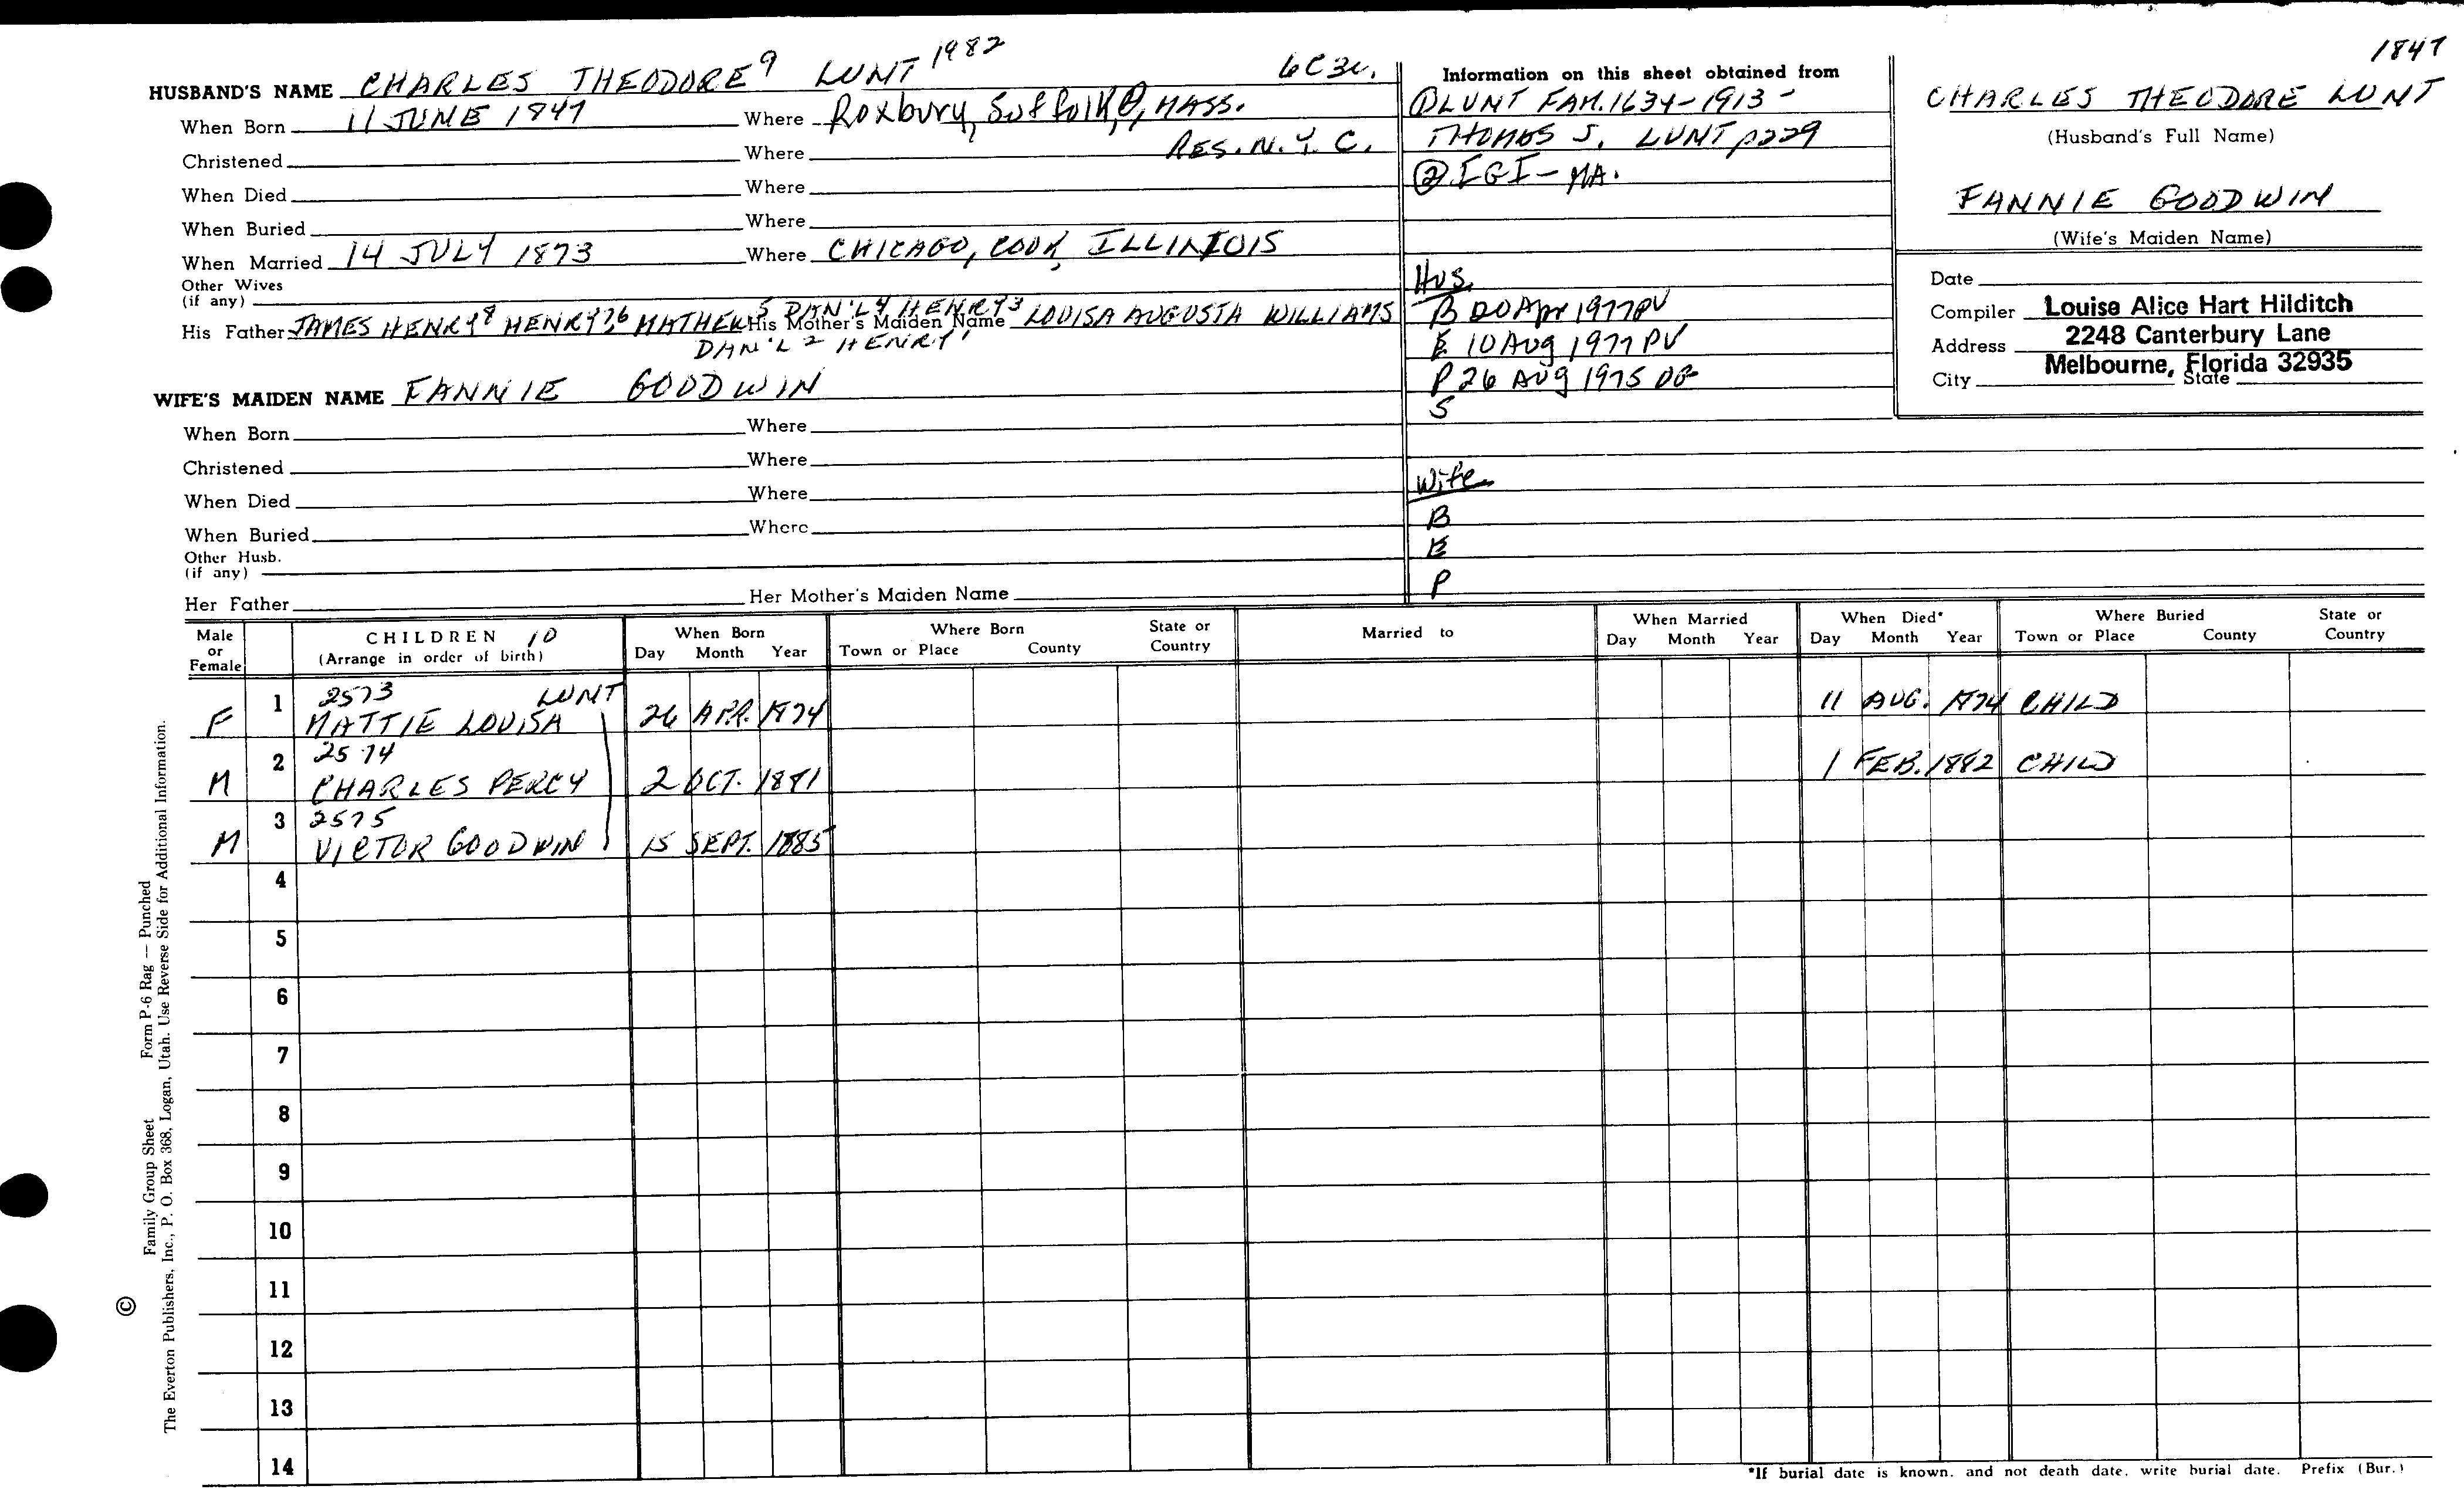 1847
HUSBAND'S NAME CHARLES THEODORE 9 LUNT 1982 6C3c.
When Born 11 JUNE 1847 Where Roxbury, Suffolk, MASS.
Christened Where RES. N.Y.C.
When Died Where
When Buried Where
When Married 14 JULY 1873 Where CHICAGO, COOK, ILLINIOIS
Other Wives
(if any)
His Father JAMES HENRY 8 HENRY 7,6 MATHER 5 DAN'L 4 HENRY 3 His Mother's Maiden Name LOUISA AUGUSTA WILLIAMS
DAN'L 2 HENRY 1
WIFE'S MAIDEN NAME FANNIE GOODWIN
When Born Where
Christened Where
When Died Where
When Buried Where
Other Husb.
(if any)
Her Father Her Mother's Maiden Name
Information on this sheet obtained from
① LUNT FAM. 1634-1913 -
THOMAS S. LUNT p229
② IGI - MA.
Hus.
B 20 Apr 1977 PV
E 10 Aug 1977 PV
P 26 AUG 1975
S
Wife
B
E
P
CHARLES THEODORE LUNT
(Husband's Full Name)
FANNIE GOODWIN
(Wife's Maiden Name)
Date
Compiler Louise Alice Hart Hilditch
Address 2248 Canterbury Lane
Melbourne, Florida 32935
City State
Male or Female
CHILDREN 10
(Arrange in order of birth)
When Born
Day Month Year
Where Born
Town or Place County State or Country
Married to
When Married
Day Month Year
When Died*
Day Month Year
Where Buried
Town or Place County State or Country
1 2573 LUNT
F MATTIE LOUISA 26 APR. 1874 11 AUG. 1874 CHILD
2 2574
M CHARLES PERCY 2 OCT. 1881 1 FEB. 1882 CHILD
3 2575
M VICTOR GOODWIN 15 SEPT. 1885
4
5
6
7
8
9
10
11
12
13
14
*If burial date is known, and not death date, write burial date. Prefix (Bur.)
© Family Group Sheet Form P-6 Rag — Punched
The Everton Publishers, Inc., P. O. Box 368, Logan, Utah. Use Reverse Side for Additional Information.